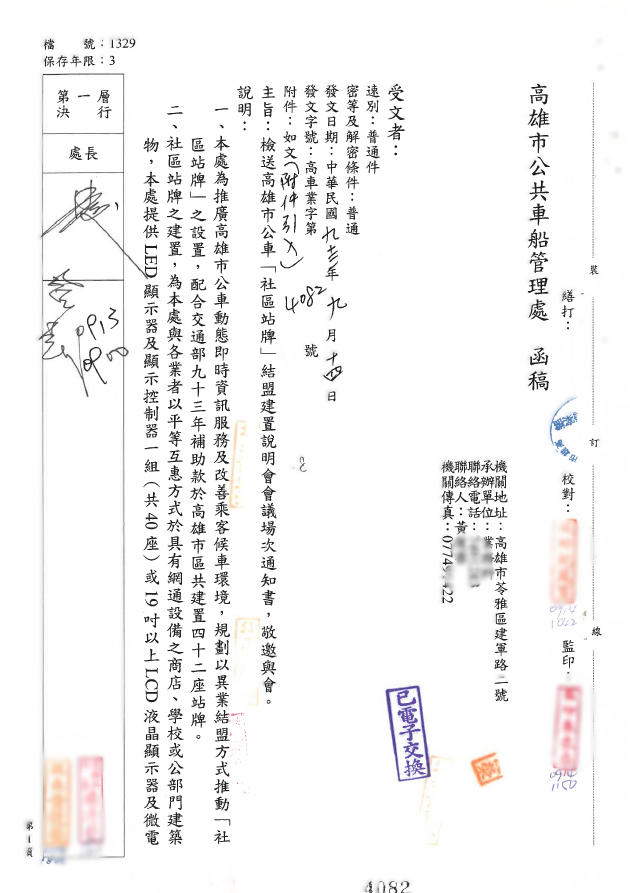 檔　　號：1329
保存年限：3
高雄市公共車船管理處　函稿
繕打：
校對：
監印：
裝
訂
線
0914
1042
0914
1150
機關地址：高雄市苓雅區建軍路二號
承辦單位：業務
聯絡電話：
聯絡人：黃
機關傳真：07749 422
受文者：
速別：普通件
密等及解密條件：普通
發文日期：中華民國九十三年九月十四日
發文字號：高車業字第4082號
附件：如文（附件引入）
主旨：檢送高雄市公車「社區站牌」結盟建置說明會會議場次通知書，敬邀與會。
說明：
一、本處為推廣高雄市公車動態即時資訊服務及改善乘客候車環境，規劃以異業結盟方式推動「社
區站牌」之設置，配合交通部九十三年補助款於高雄市區共建置四十二座站牌。
二、社區站牌之建置，為本處與各業者以平等互惠方式於具有網通設備之商店、學校或公部門建築
物，本處提供LED顯示器及顯示控制器一組（共40座）或19吋以上LCD液晶顯示器及微電
已電子交換
第一層
決　行
處長
0913
0900
第1頁
4082